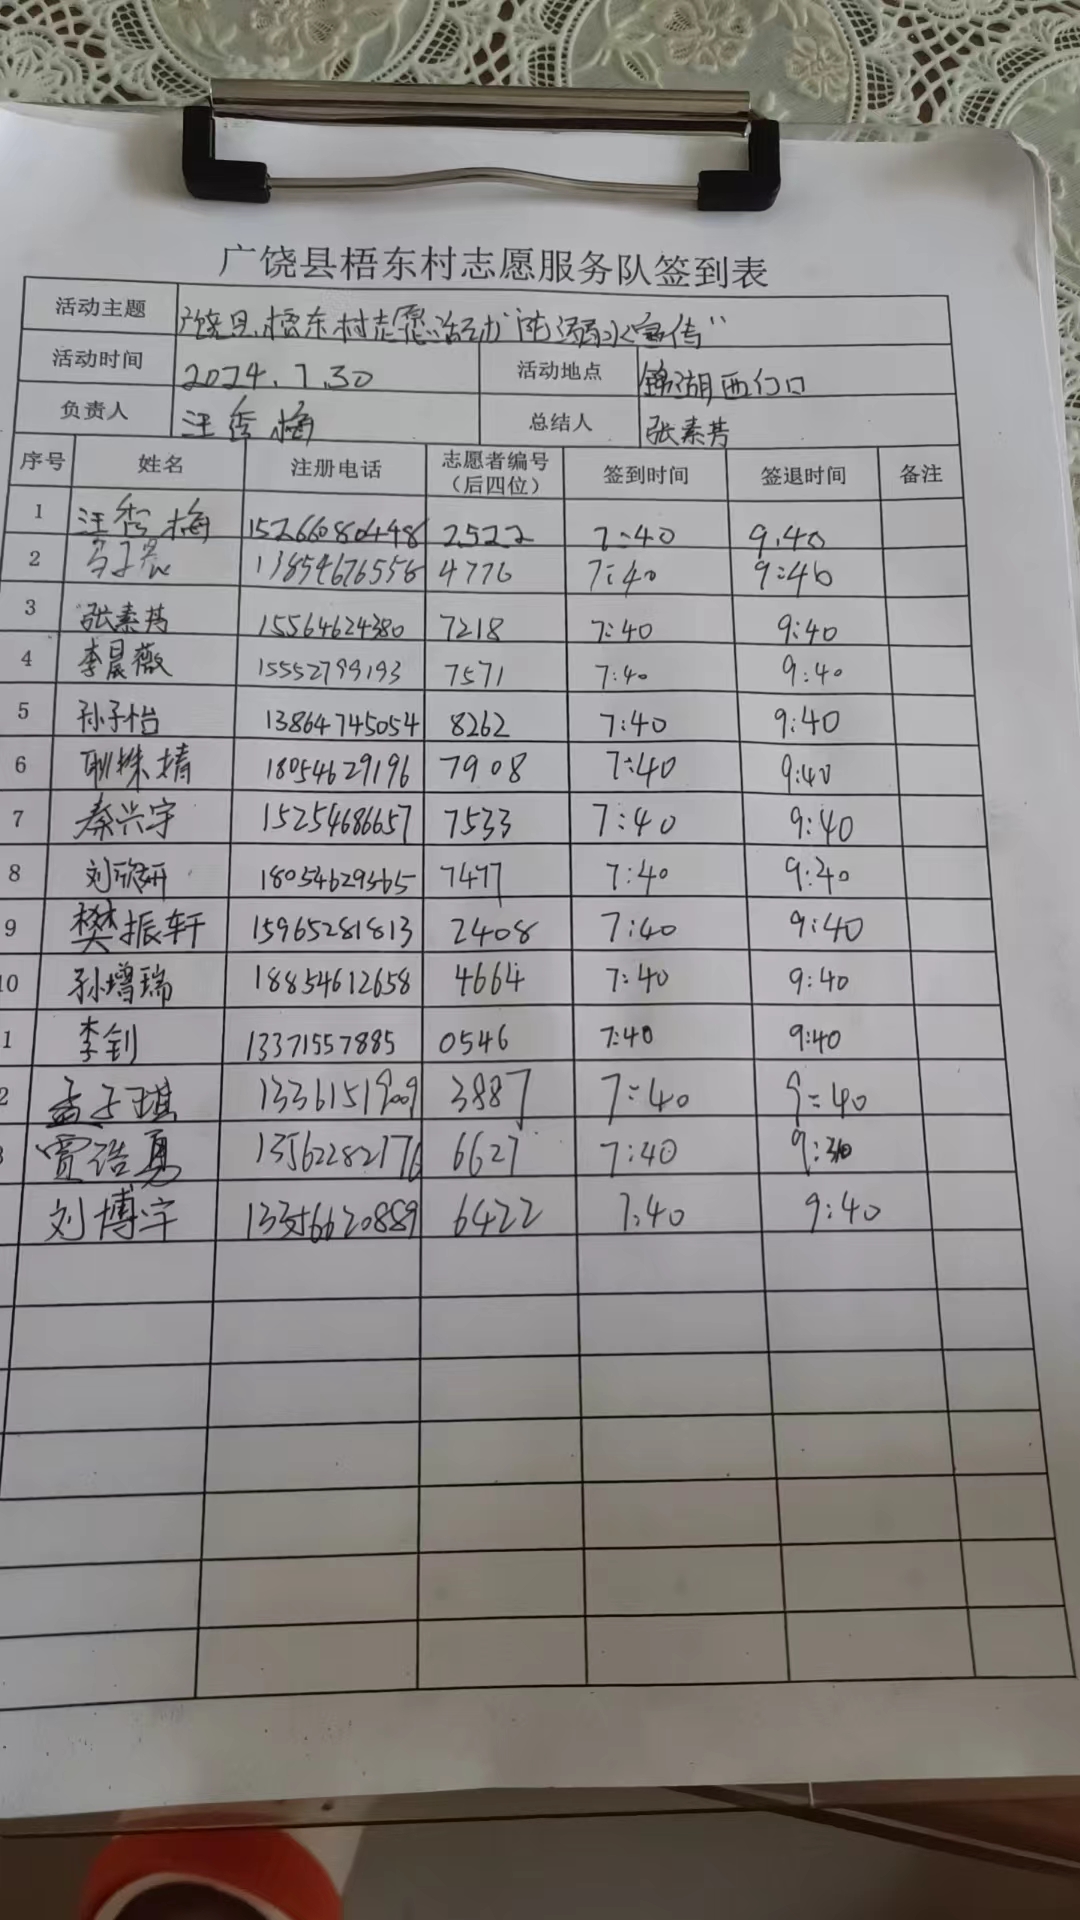 广饶县梧东村志愿服务队签到表
活动主题 广饶县梧东村志愿活动"防溺水宣传"
活动时间 2024.7.30 活动地点 锦湖西门口
负责人 汪秀梅 总结人 张素芳
序号 姓名 注册电话 志愿者编号（后四位） 签到时间 签退时间 备注
1 汪秀梅 15266080448 2522 7:40 9.40
2 13854676556 4776 7:40 9:40
3 张素芳 15564624380 7218 7:40 9:40
4 李晨薇 15552799193 7571 7:40 9:40
5 孙子怡 13864745054 8262 7:40 9:40
6 耿姝婧 18054629196 7908 7:40 9:40
7 秦兴宇 15254686657 7533 7:40 9:40
8 刘欣妍 18054629365 7477 7:40 9:40
9 樊振轩 15965281813 2408 7:40 9:40
10 孙增瑞 18854612658 4664 7:40 9:40
1 李钊 13371557885 0546 7:40 9:40
2 孟子琪 13361519009 3887 7=40 9=40
3 贾浩夏 13562282176 6627 7:40 9:40
刘博宇 6422 7.40 9:40